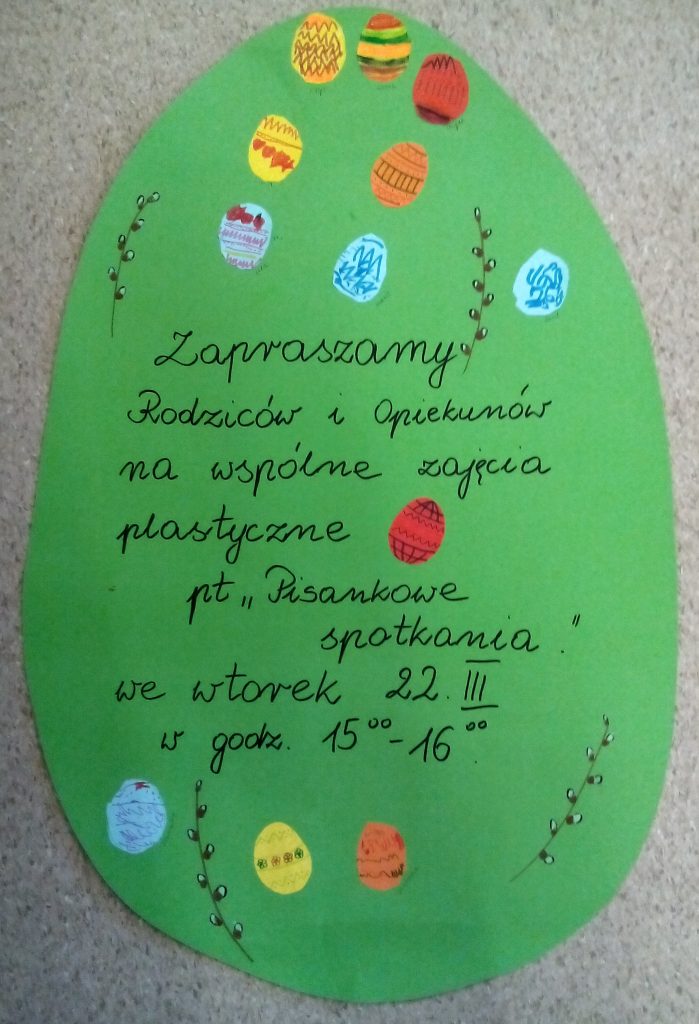 Zapraszamy
Rodziców i Opiekunów
na wspólne zajęcia
plastyczne
pt „Pisankowe
spotkania."
we wtorek 22. III
w godz. 15⁰⁰-16⁰⁰.